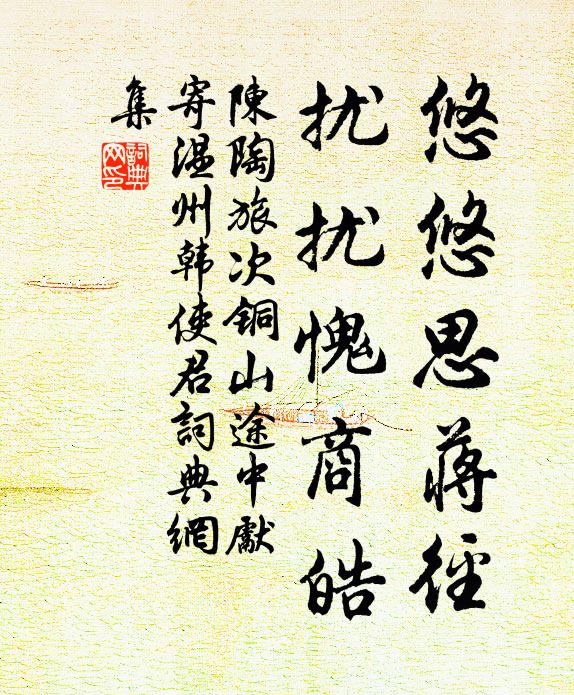 悠悠思蒋径
扰扰愧商皓
陳陶旅次铜山途中獻
寄温州韩使君詞典網
集
詞典
网印